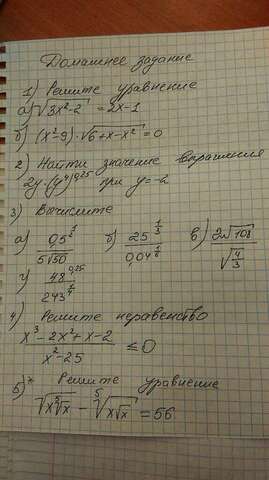 Домашнее задание
1) Решите уравнение
а) √(3x²-2) = 2x-1
б) (x²-9)·√(6+x-x²) = 0
2) Найти значение выражения
2y·(y⁴)^0,25 при y=-2
3) Вычислите
а) 0,5^(1/2) / (1/(5√50)) б) 25^(1/3) / 0,04^(1/6) в) 2√108 / √(4/3)
г) 48^0,25 / 243^(1/4)
4) Решите неравенство
(x³-2x²+x-2) / (x²-25) ≤ 0
5)* Решите уравнение
√(x⁵√x) - ⁵√(x√x) = 56